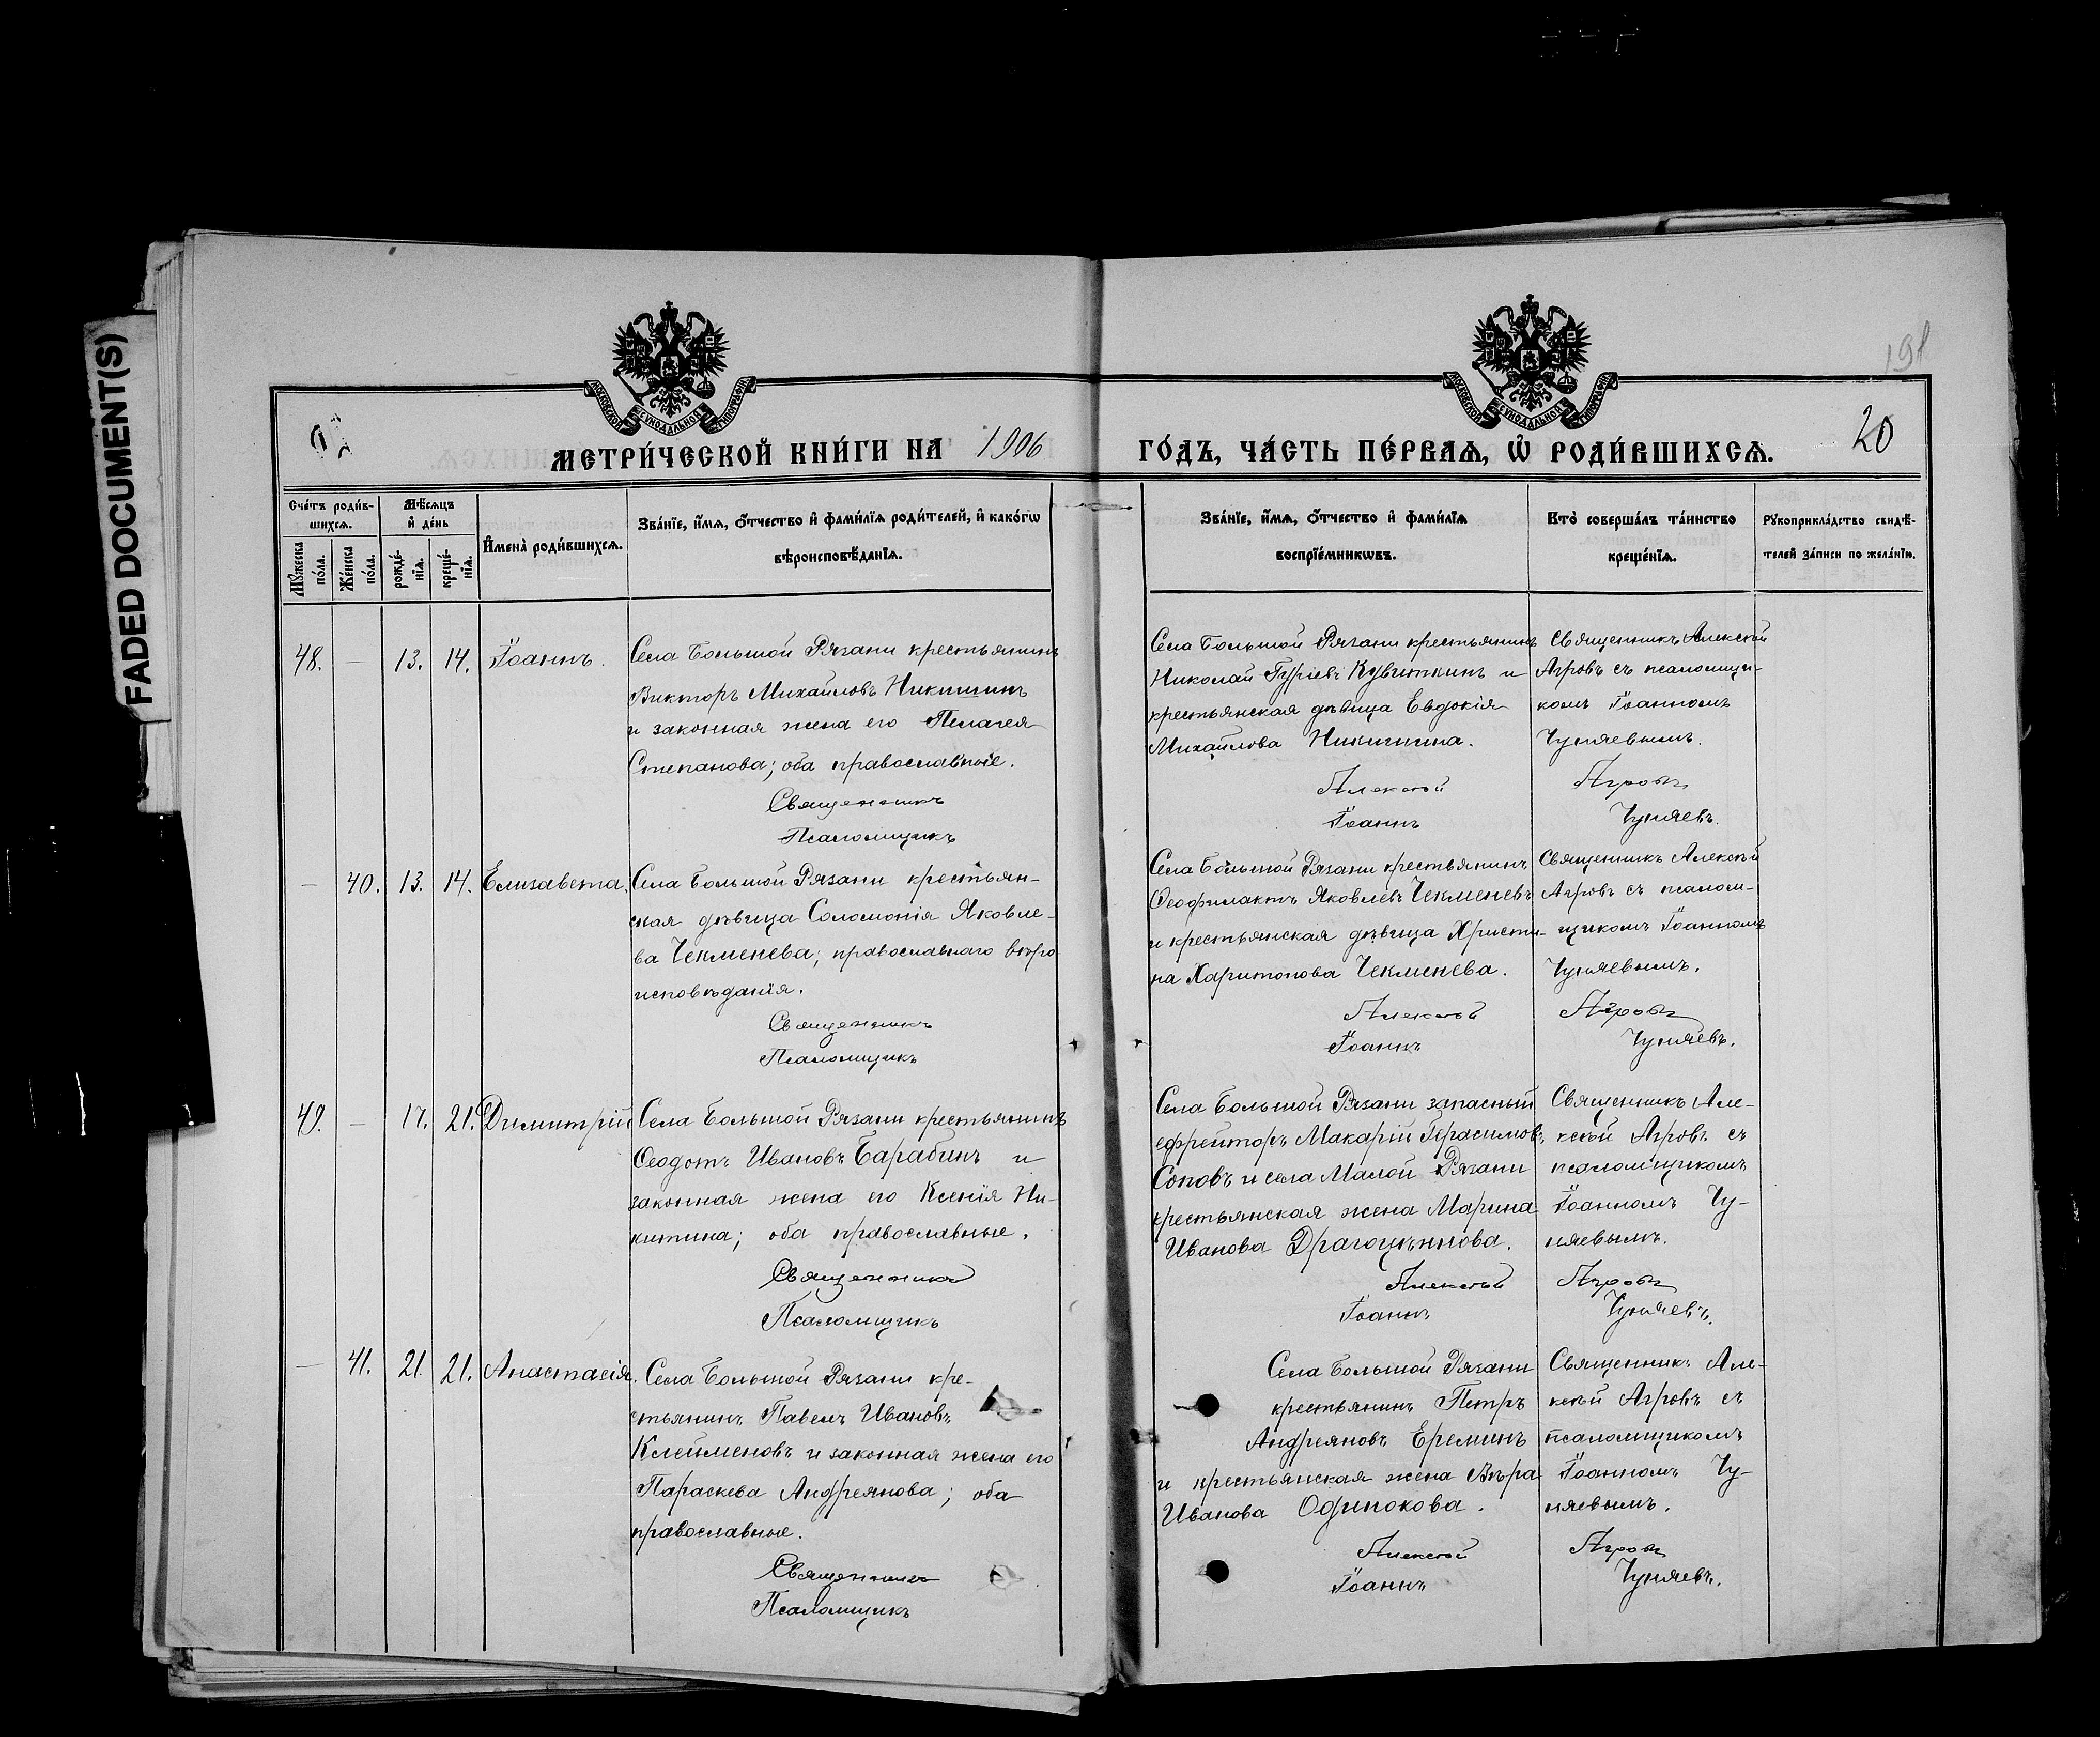 FADED DOCUMENT(S)
191
20
МОСКОВСКОЙ СѴНОДАЛЬНОЙ ТИПОГРАФІИ
МОСКОВСКОЙ СѴНОДАЛЬНОЙ ТИПОГРАФІИ
МЕТРИ́ЧЕСКОЙ КНИ́ГИ НА 1906 ГО́ДЪ, ЧА́СТЬ ПЕ́РВАѦ, Ѡ҆ РОДИ́ВШИХСѦ.
Сче́тъ роди́в-
шихсѧ.
Мꙋ́жеска
по́ла.
Же́нска
по́ла.
Мѣ́сѧцъ
и҆ де́нь
рожде́-
нїѧ.
креще́-
нїѧ.
И҆мена̀ роди́вшихсѧ.
Зва́нїе, и҆́мѧ, ѻ҆́тчество и҆ фами́лїѧ роди́телей, и҆ како́гѡ
вѣроисповѣ́данїѧ.
Зва́нїе, и҆́мѧ, ѻ҆́тчество и҆ фами́лїѧ
воспрїе́мникѡвъ.
Кто̀ соверша́лъ та́инство
креще́нїѧ.
Рꙋкоприкла́дство свидѣ́-
телей за́писи по жела́нїю.
48. — 13. 14. Іоаннъ.
Села Большой Рязани крестьянинъ
Викторъ Михайловъ Никишинъ
и законная жена его Пелагея
Степанова; оба православные.
Священникъ
Псаломщикъ
Села Большой Рязани крестьянинъ
Николай Гуріевъ Кувиткинъ и
крестьянская дѣвица Евдокія
Михайлова Никишина.
Алексѣй
Іоаннъ
Священникъ Алексѣй
Агровъ съ псаломщи-
комъ Іоанномъ
Чуняевымъ.
Агровъ
Чуняевъ.
— 40. 13. 14. Елизавета.
Села Большой Рязани крестьян-
ская дѣвица Соломонія Яковле-
ва Чекменева; православнаго вѣро-
исповѣданія.
Священникъ
Псаломщикъ
Села Большой Рязани крестьянинъ
Ѳеофилактъ Яковлевъ Чекменевъ
и крестьянская дѣвица Христи-
на Харитонова Чекменева.
Алексѣй
Іоаннъ
Священникъ Алексѣй
Агровъ съ псалом-
щикомъ Іоанномъ
Чуняевымъ.
Агровъ
Чуняевъ.
49. — 17. 21. Димитрій
Села Большой Рязани крестьянинъ
Ѳеодотъ Ивановъ Барабинъ и
законная жена его Ксенія Ни-
китина; оба православные.
Священникъ
Псаломщикъ
Села Большой Рязани запасный
ефрейторъ Макарій Герасимовъ
Соповъ и села Малой Рязани
крестьянская жена Марина
Иванова Драгоцѣннова.
Алексѣй
Іоаннъ
Священникъ Але-
ксѣй Агровъ съ
псаломщикомъ
Іоанномъ Чу-
няевымъ.
Агровъ
Чуняевъ.
— 41. 21. 21. Анастасія.
Села Большой Рязани кре-
стьянинъ Павелъ Ивановъ
Клейменовъ и законная жена его
Параскева Андреянова; оба
православные.
Священникъ
Псаломщикъ
Села Большой Рязани
крестьянинъ Петръ
Андреяновъ Ереминъ
и крестьянская жена Вѣра
Иванова Одинокова.
Алексѣй
Іоаннъ
Священникъ Але-
ксѣй Агровъ съ
псаломщикомъ
Іоанномъ Чу-
няевымъ.
Агровъ
Чуняевъ.